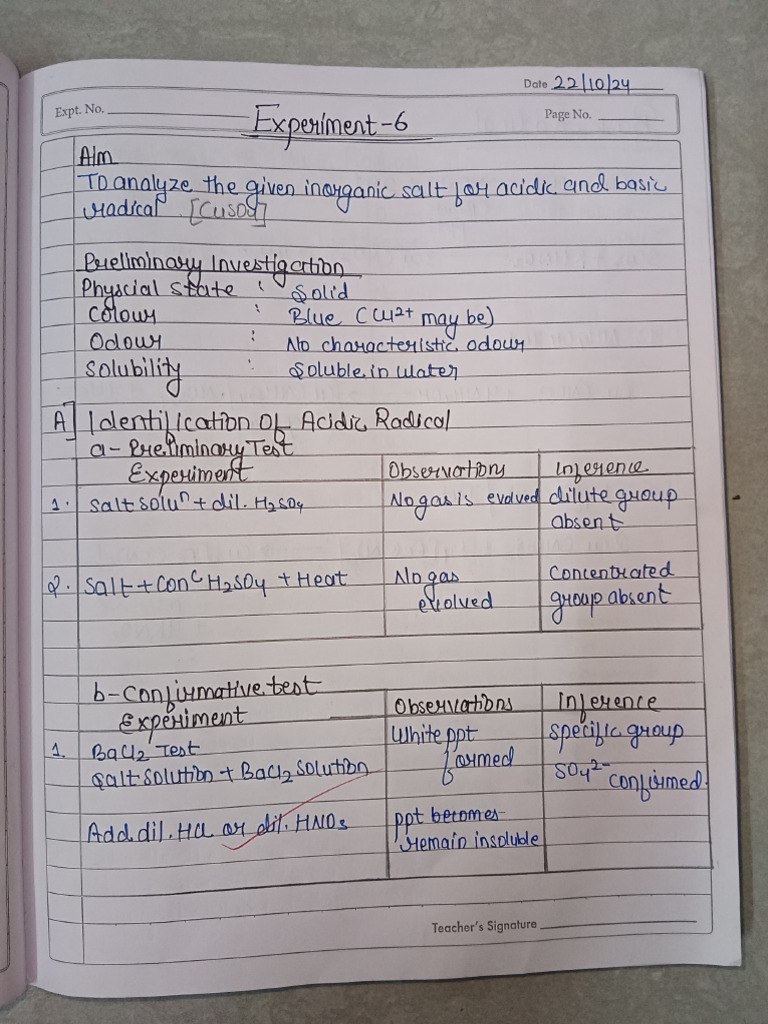 Date 22/10/24
Expt. No.
Experiment-6
Page No.
Aim
To analyze the given inorganic salt for acidic and basic
radical [CuSO4]
Preliminary Investigation
Physcial state : Solid
Colour : Blue (Cu2+ may be)
Odour : No characteristic odour
Solubility : Soluble in water
A] Identification Of Acidic Radical
a- Preliminary Test
Experiment Observations Inference
1. Salt soluⁿ + dil. H₂SO₄ No gas is evolved dilute group
absent
2. Salt + Conᶜ H₂SO₄ + Heat No gas Concentrated
evolved group absent
b- Confirmative test
Experiment Observations Inference
1. BaCl₂ Test White ppt specific group
Salt solution + BaCl₂ solution formed SO₄²⁻ confirmed.
Add dil. HCl or dil. HNO₃ ppt becomes
remain insoluble
Teacher's Signature